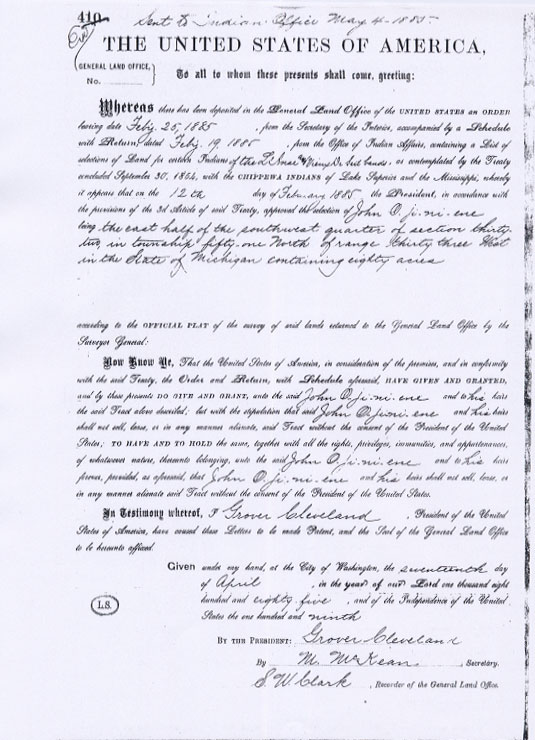 410 Sent to Indian Office May 4-1885
THE UNITED STATES OF AMERICA,
GENERAL LAND OFFICE,
No.
To all to whom these presents shall come, greeting:
Whereas there has been deposited in the General Land Office of the UNITED STATES an ORDER
bearing date Feb'y 25, 1885, from the Secretary of the Interior, accompanied by a Schedule
with Return, dated Feb'y 19, 1885, from the Office of Indian Affairs, containing a List of
selections of Land for certain Indians of the L'Anse & Vieux De Sert bands, as contemplated by the Treaty
concluded September 30, 1854, with the CHIPPEWA INDIANS of Lake Superior and the Mississippi, whereby
it appears that on the 12th day of February 1885 the President, in accordance with
the provisions of the 3d Article of said Treaty, approved the selection of John O. ji. ni. ene
being the east half of the southwest quarter of section thirty-
two, in township fifty-one North of range thirty three West
in the State of Michigan containing eighty acres
according to the OFFICIAL PLAT of the survey of said lands returned to the General Land Office by the
Surveyor General:
Now Know Ye, That the United States of America, in consideration of the premises, and in conformity
with the said Treaty, the Order and Return, with Schedule aforesaid, HAVE GIVEN AND GRANTED,
and by these presents DO GIVE AND GRANT, unto the said John O. ji. ni. ene and to his heirs
the said Tract above described; but with the stipulation that said John O. ji. ni. ene and his heirs
shall not sell, lease, or in any manner alienate, said Tract without the consent of the President of the United
States; TO HAVE AND TO HOLD the same, together with all the rights, privileges, immunities, and appurtenances,
of whatsoever nature, thereunto belonging, unto the said John O. ji. ni. ene and to his heirs
forever, provided, as aforesaid, that John O. ji. ni. ene and his heirs shall not sell, lease, or
in any manner alienate said Tract without the consent of the President of the United States.
In Testimony whereof, I Grover Cleveland, President of the United
States of America, have caused these Letters to be made Patent, and the Seal of the General Land Office
to be hereunto affixed.
Given under my hand, at the City of Washington, the seventeenth day
of April, in the year of our Lord one thousand eight
hundred and eighty five, and of the Independence of the United
States the one hundred and ninth
L.S.
BY THE PRESIDENT: Grover Cleveland
By M. McKean, Secretary.
S. W. Clark, Recorder of the General Land Office.